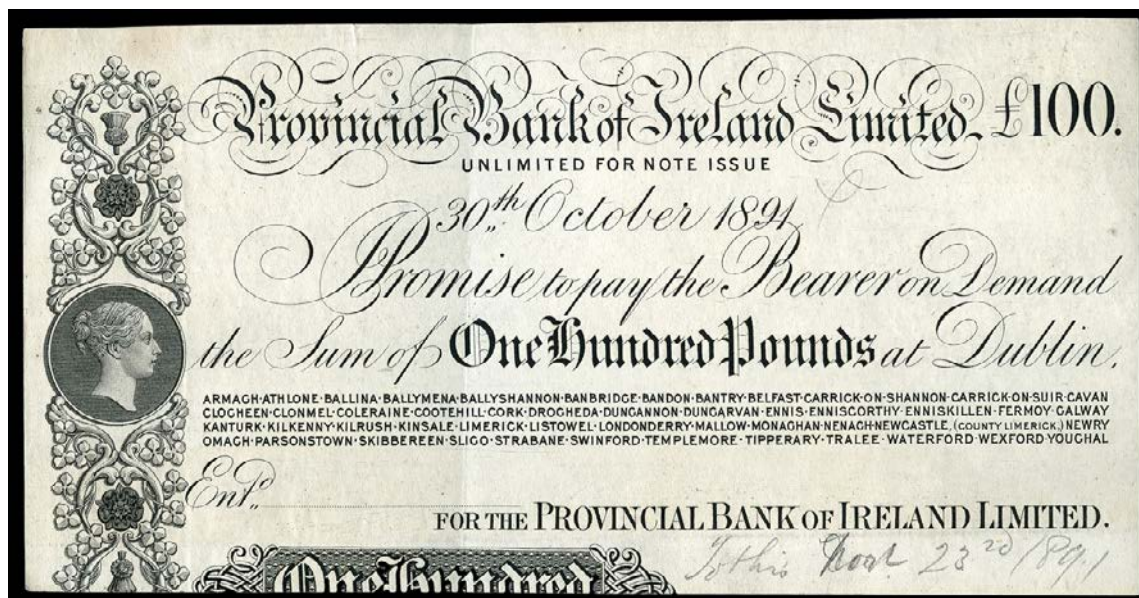 Provincial Bank of Ireland Limited. £100.
UNLIMITED FOR NOTE ISSUE
30th October 1891
Promise to pay the Bearer on Demand
the Sum of One Hundred Pounds at Dublin.
ARMAGH·ATHLONE·BALLINA·BALLYMENA·BALLYSHANNON·BANBRIDGE·BANDON·BANTRY·BELFAST·CARRICK-ON-SHANNON·CARRICK-ON-SUIR·CAVAN
CLOGHEEN·CLONMEL·COLERAINE·COOTEHILL·CORK·DROGHEDA·DUNGANNON·DUNGARVAN·ENNIS·ENNISCORTHY·ENNISKILLEN·FERMOY·GALWAY
KANTURK·KILKENNY·KILRUSH·KINSALE·LIMERICK·LISTOWEL·LONDONDERRY·MALLOW·MONAGHAN·NENAGH·NEWCASTLE, (COUNTY LIMERICK,) NEWRY
OMAGH·PARSONSTOWN·SKIBBEREEN·SLIGO·STRABANE·SWINFORD·TEMPLEMORE·TIPPERARY·TRALEE·WATERFORD·WEXFORD·YOUGHAL
Entd.
FOR THE PROVINCIAL BANK OF IRELAND LIMITED.
23rd /891
One Hundred